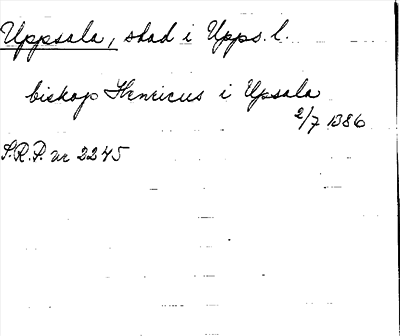 Uppsala, stad i Upps. l.
biskop Henricus i Upsala
2/7 1386
S.R.P. nr 2245